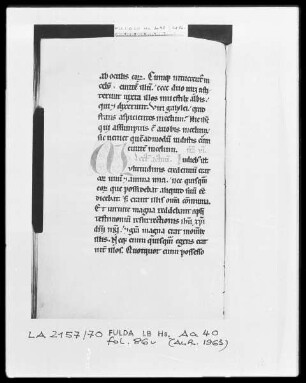 ab oculis eorum. Cumque intuerentur in
celum eunte illum. ecce duo viri as
titerunt iuxta illos in vestibus albis.
qui et dixerunt. Viri galylei quid
statis aspicientes in celum. hic iesus
qui assumptus est a vobis in celum.
sic veniet quemadmodum vidistis eum
euntem in celum.
In diebus illis.
Multitudinis credentium erat
cor unum et anima una. nec quisquam
eorum que possidebat aliquid suum esse
dicebat. sed erant illis omnia communia.
Et virtute magna reddebant apostoli
testimonium resurrectionis
domini nostri. et gratia magna erat in omnibus
illis. Neque enim quisquam egens erat
inter illos. Quotquot enim possesso
LA 2157/70 FULDA LB Hs. Aa 40
fol. 86v (ALR. 1963)